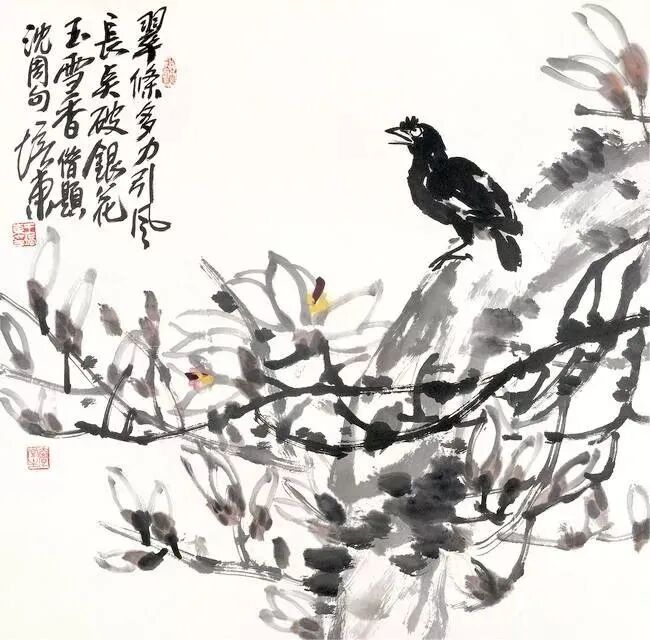 翠條多力引風
長奌破銀花
玉雪香借題
沈周句培東